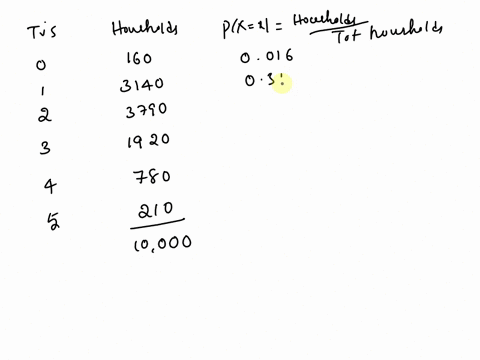 Tv's Households P(X=x) = Households / Tot housholds
0 160 0.016
1 3140 0.31
2 3790
3 1920
4 780
5 210
10,000